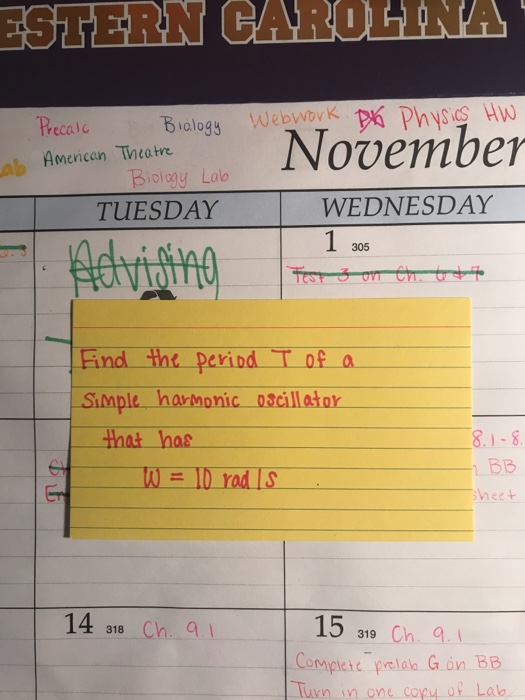 ESTERN CAROLINA
Precalc Biology Webwork Physics HW
ab American Theatre November
Biology Lab
TUESDAY WEDNESDAY
1 305
Advising
Test 3 on Ch. 6 & 7
Find the period T of a
Simple harmonic oscillator
that has
W = 10 rad/s
8.1-8.
BB
sheet
14 318 Ch. 9.1
15 319 Ch. 9.1
Complete prelab G on BB
Turn in one copy of Lab